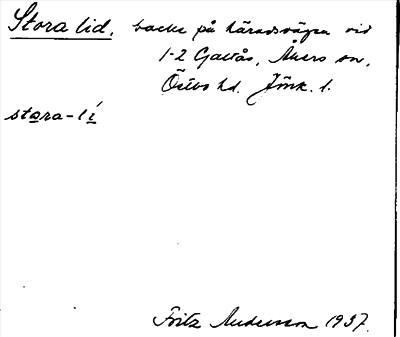 Stora lid, backe på häradsvägen vid
1-2 Galtås, Åkers sn,
Östbo hd. Jönk. l.
stora-lí
Fritz Andersson 1937.